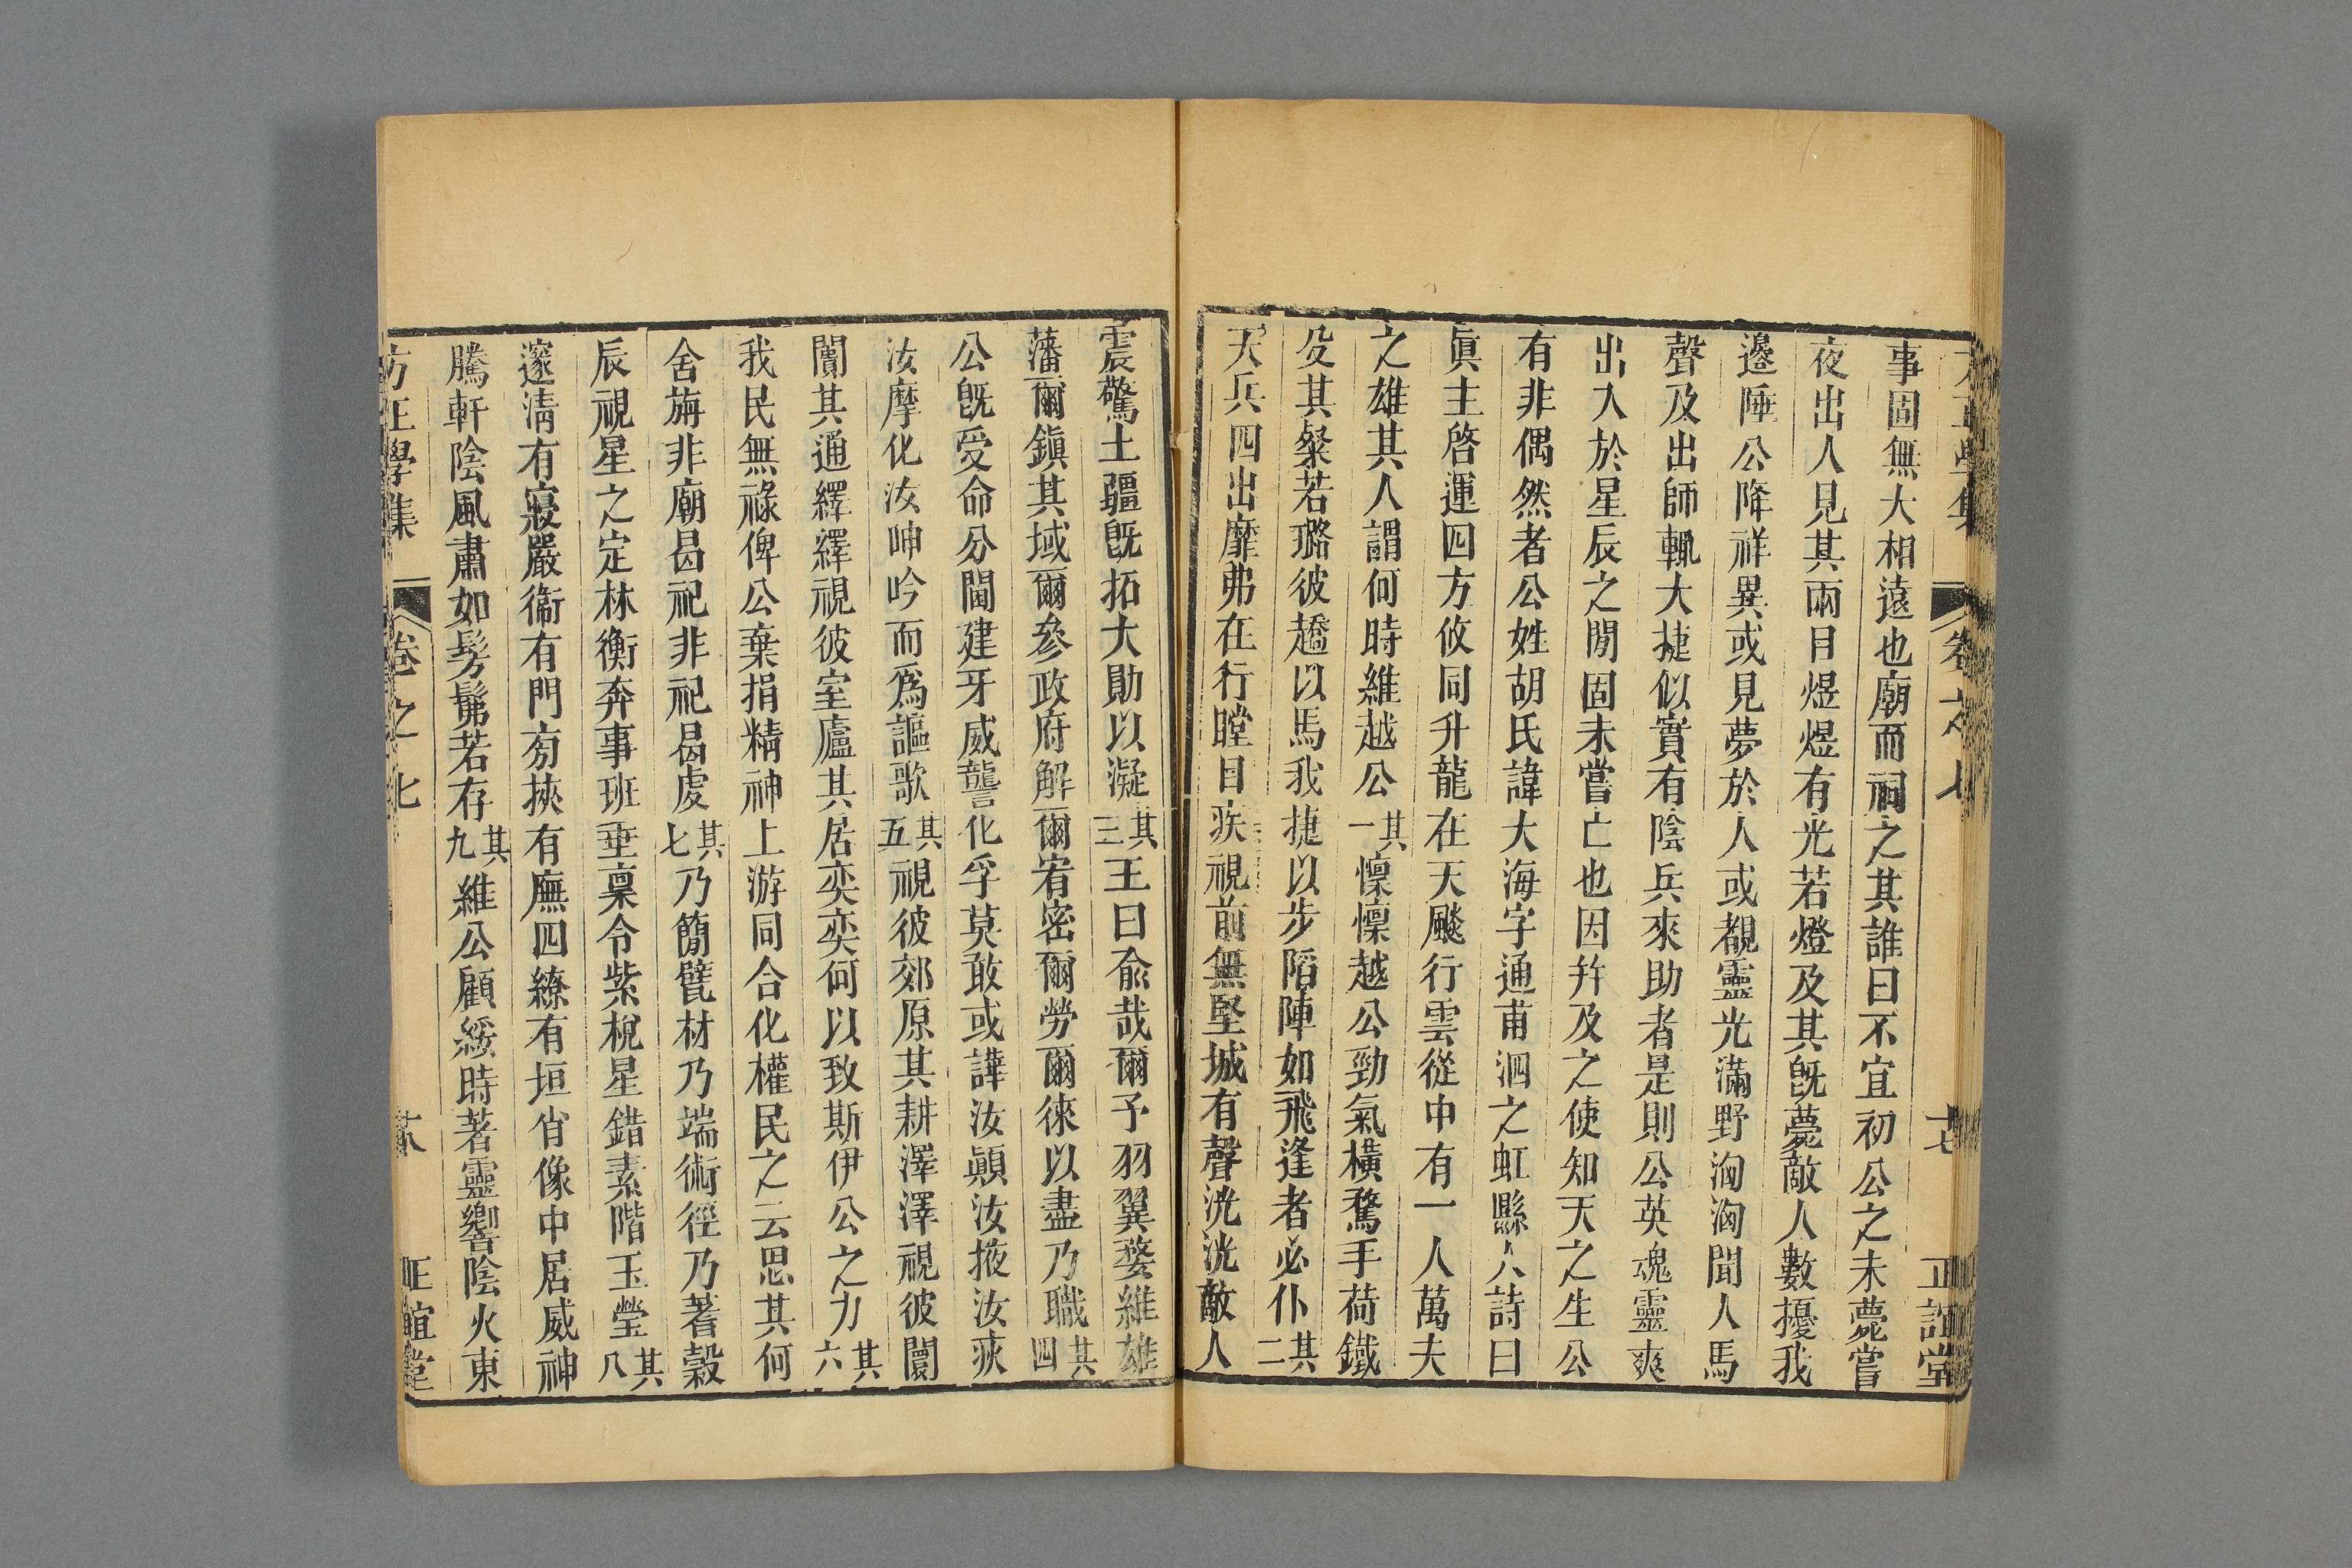 事固無大相遠也廟而祠之其誰曰不宜初公之未薨嘗
夜出人見其兩目煜煜有光若燈及其旣薨敵人數擾我
邊陲公降祥異或見夢於人或覩靈光滿野洶洶聞人馬
聲及出師輒大捷似實有陰兵來助者是則公英魂靈爽
出入於星辰之閒固未嘗亡也因幷及之使知天之生公
有非偶然者公姓胡氏諱大海字通甫泗之虹縣人詩曰
眞主啓運四方攸同升龍在天飈行雲從中有一人萬夫
之雄其人謂何時維越公其一懍懍越公勁氣橫騖手荷鐵
殳其粲若璐彼趫以馬我捷以步陷陣如飛逢者必仆其二
天兵四出靡弗在行瞠目疾視前無堅城有聲洸洸敵人
震驚土疆旣拓大勛以凝其三王曰兪哉爾予羽翼婺維雄
藩爾鎭其域爾參政府解爾宥密爾勞爾徠以盡乃職其四
公旣受命分閫建牙威讋化孚莫敢或譁汝顚汝掖汝痎
汝摩化汝呻吟而爲謳歌其五視彼郊原其耕澤澤視彼闤
闠其通繹繹視彼室廬其居奕奕何以致斯伊公之力其六
我民無祿俾公棄捐精神上游同合化權民之云思其何
舍旃非廟曷祀非祀曷虔其七乃簡甓材乃端術徑乃蓍穀
辰視星之定林衡奔事班垂稟令紫棁星錯素階玉瑩其八
邃淸有寢嚴衞有門旁挾有廡四繚有垣肖像中居威神
騰軒陰風肅如髣髴若存其九維公顧綏時著靈響陰火東
方正學集 卷之七 十八 正誼堂